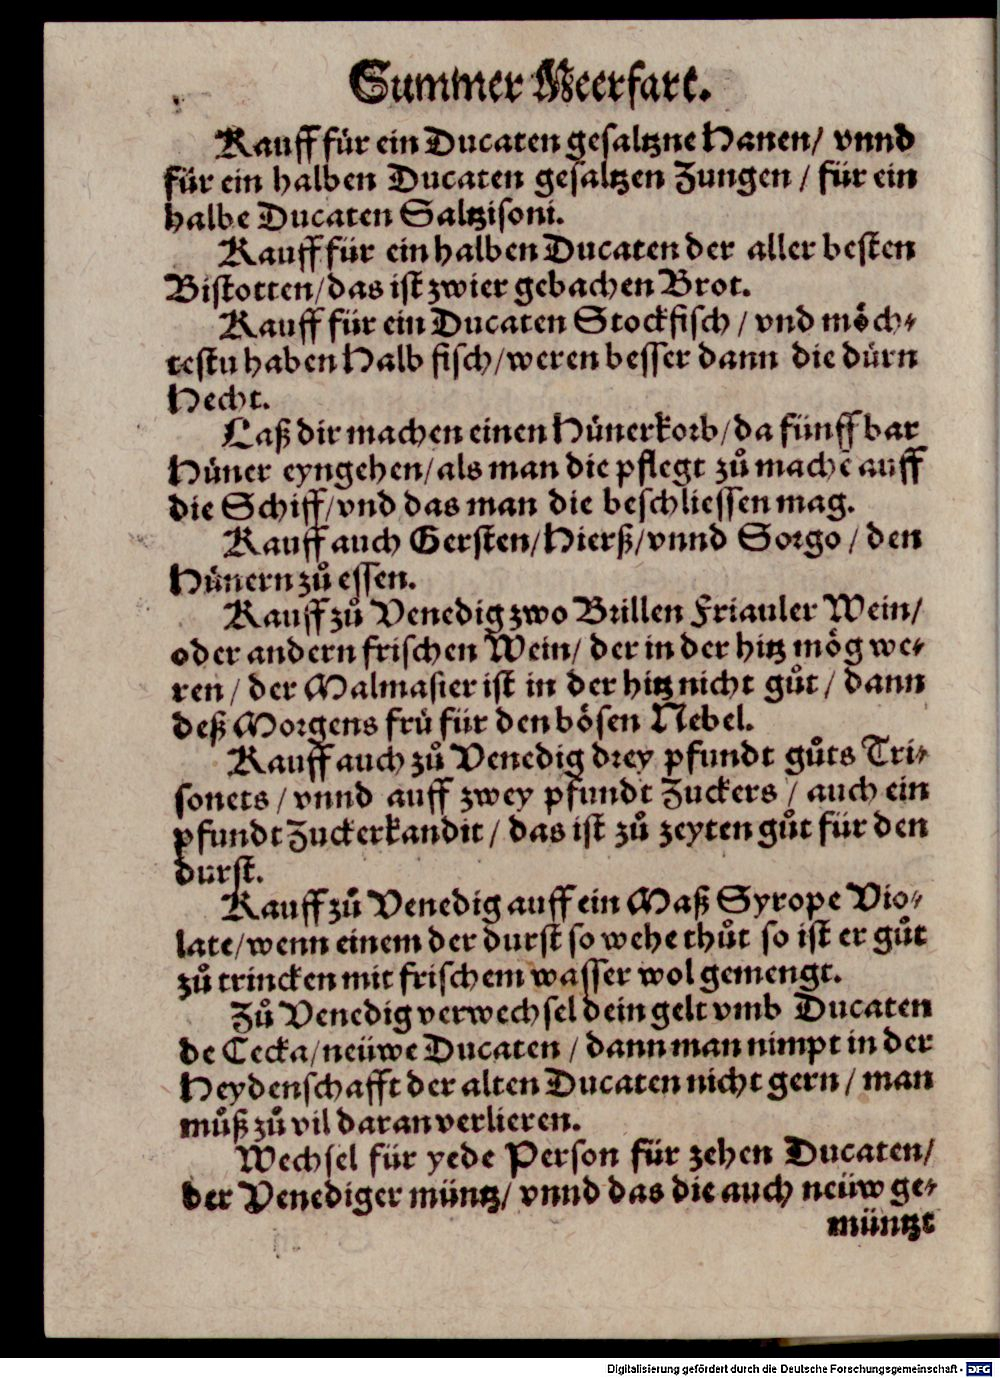 Summer Meerfart.
Kauff für ein Ducaten gesaltzne Hanen/ vnnd
für ein halben Ducaten gesaltzen Zungen / für ein
halbe Ducaten Saltzisoni.
Kauff für ein halben Ducaten der aller besten
Bistotten/das ist zwier gebachen Brot.
Kauff für ein Ducaten Stockfisch / vnd moͤch⸗
testu haben Halb fisch/weren besser dann die duͤrn
Hecht.
Laß dir machen einen Huͤnerkorb/da fünff bar
Huͤner eyngehen/als man die pflegt zů machē auff
die Schiff/vnd das man die beschliessen mag.
Kauff auch Gersten/Hierß/vnnd Sorgo / den
Huͤnern zů essen.
Kauff zů Venedig zwo Brillen Friauler Wein/
oder andern frischen Wein/ der in der hitz moͤg we⸗
ren / der Malmasier ist in der hitz nicht gůt / dann
deß Morgens fruͤ für den boͤsen Nebel.
Kauff auch zů Venedig drey pfundt gůts Tri⸗
sonets / vnnd auff zwey pfundt Zuckers / auch ein
pfundt Zuckerkandit / das ist zů zeyten gůt für den
durst.
Kauff zů Venedig auff ein Maß Syrope Vio⸗
late/wenn einem der durst so wehe thůt so ist er gůt
zů trincken mit frischem wasser wol gemengt.
Zů Venedig verwechsel dein gelt vmb Ducaten
de Cecka/neüwe Ducaten / dann man nimpt in der
Heydenschafft der alten Ducaten nicht gern / man
můß zů vil daran verlieren.
Wechsel für yede Person für zehen Ducaten/
der Venediger müntz/ vnnd das die auch neüw ge⸗
müntzt
Digitalisierung gefördert durch die Deutsche Forschungsgemeinschaft - DFG